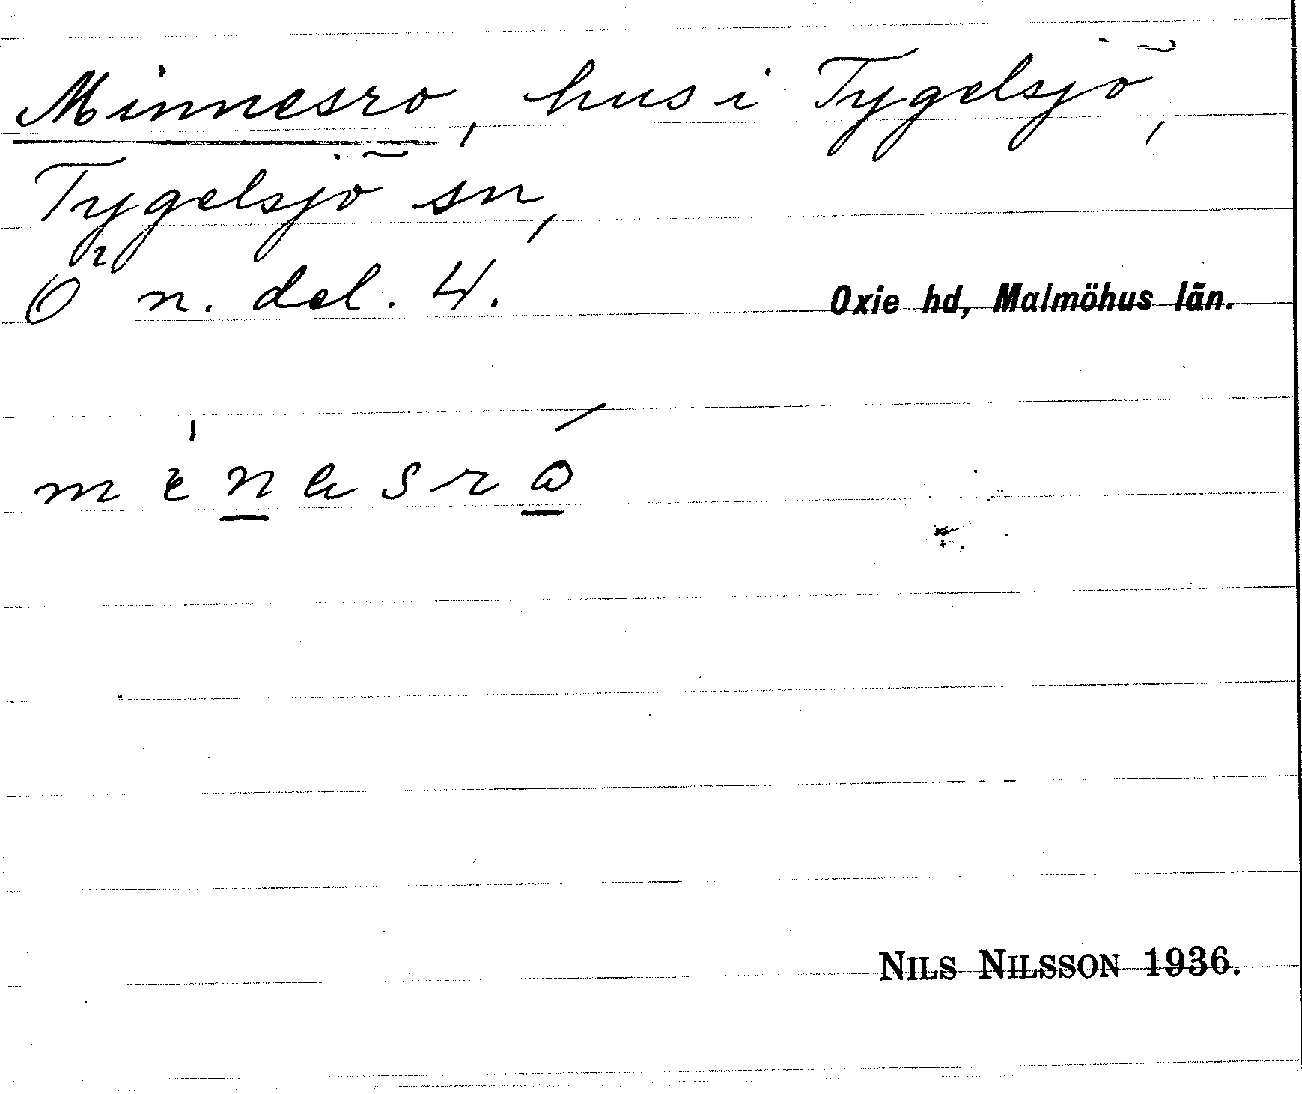 Minnesro, hus i Tygelsjö,
Tygelsjö sn,
Ö n. del. 4.
Oxie hd, Malmöhus län.
NILS NILSSON 1936.